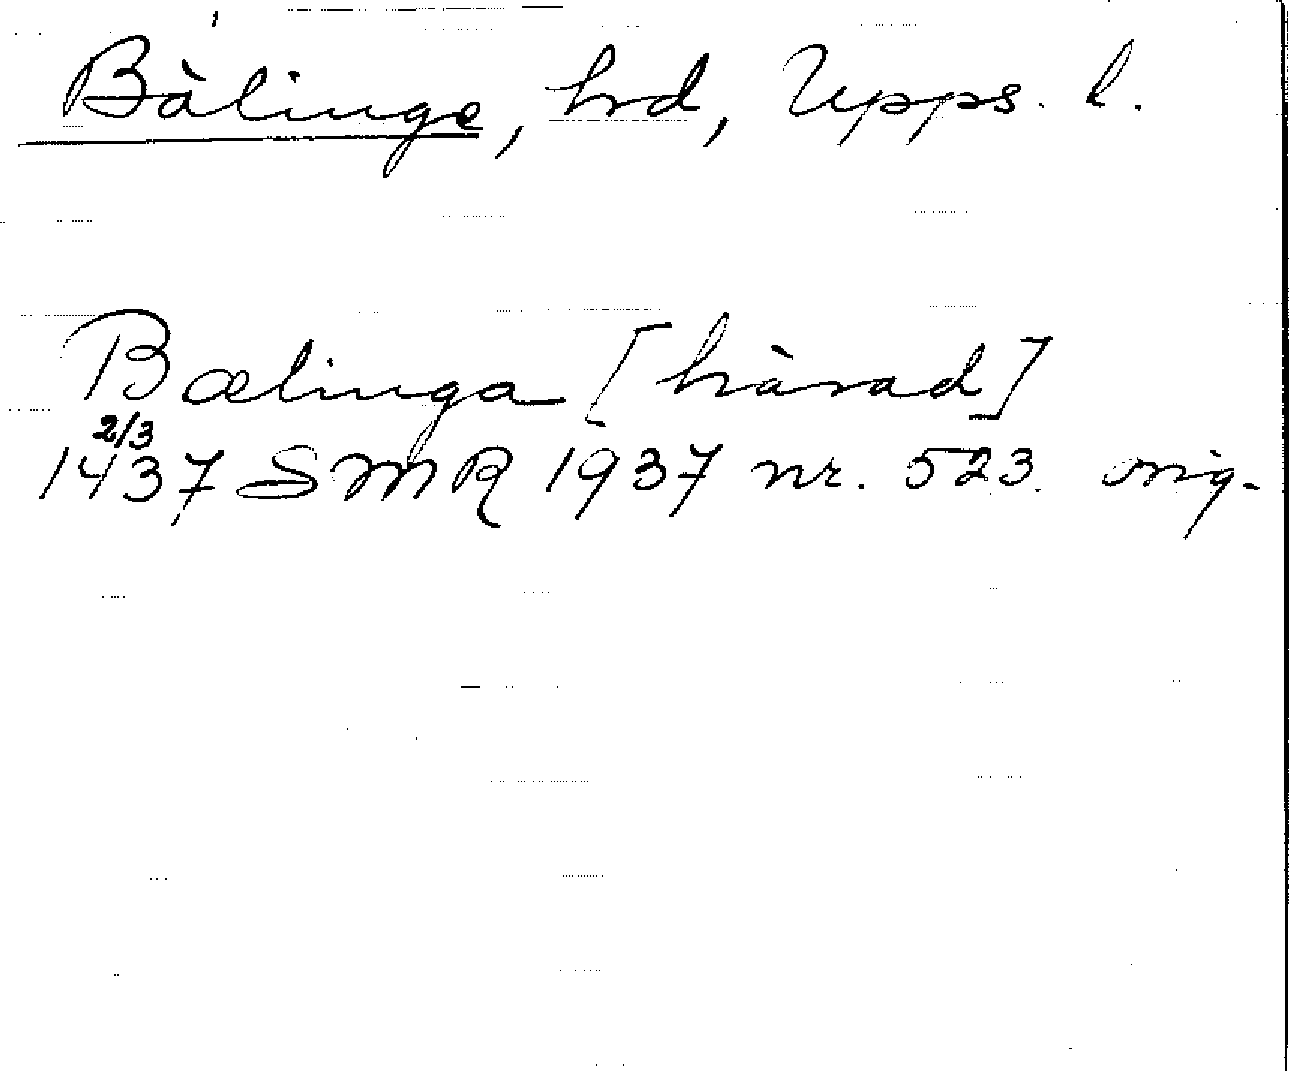 Bälinge, hd, Upps. l.
Bælinga [härad]
2/3
1437 SMR 1937 nr. 523. orig.